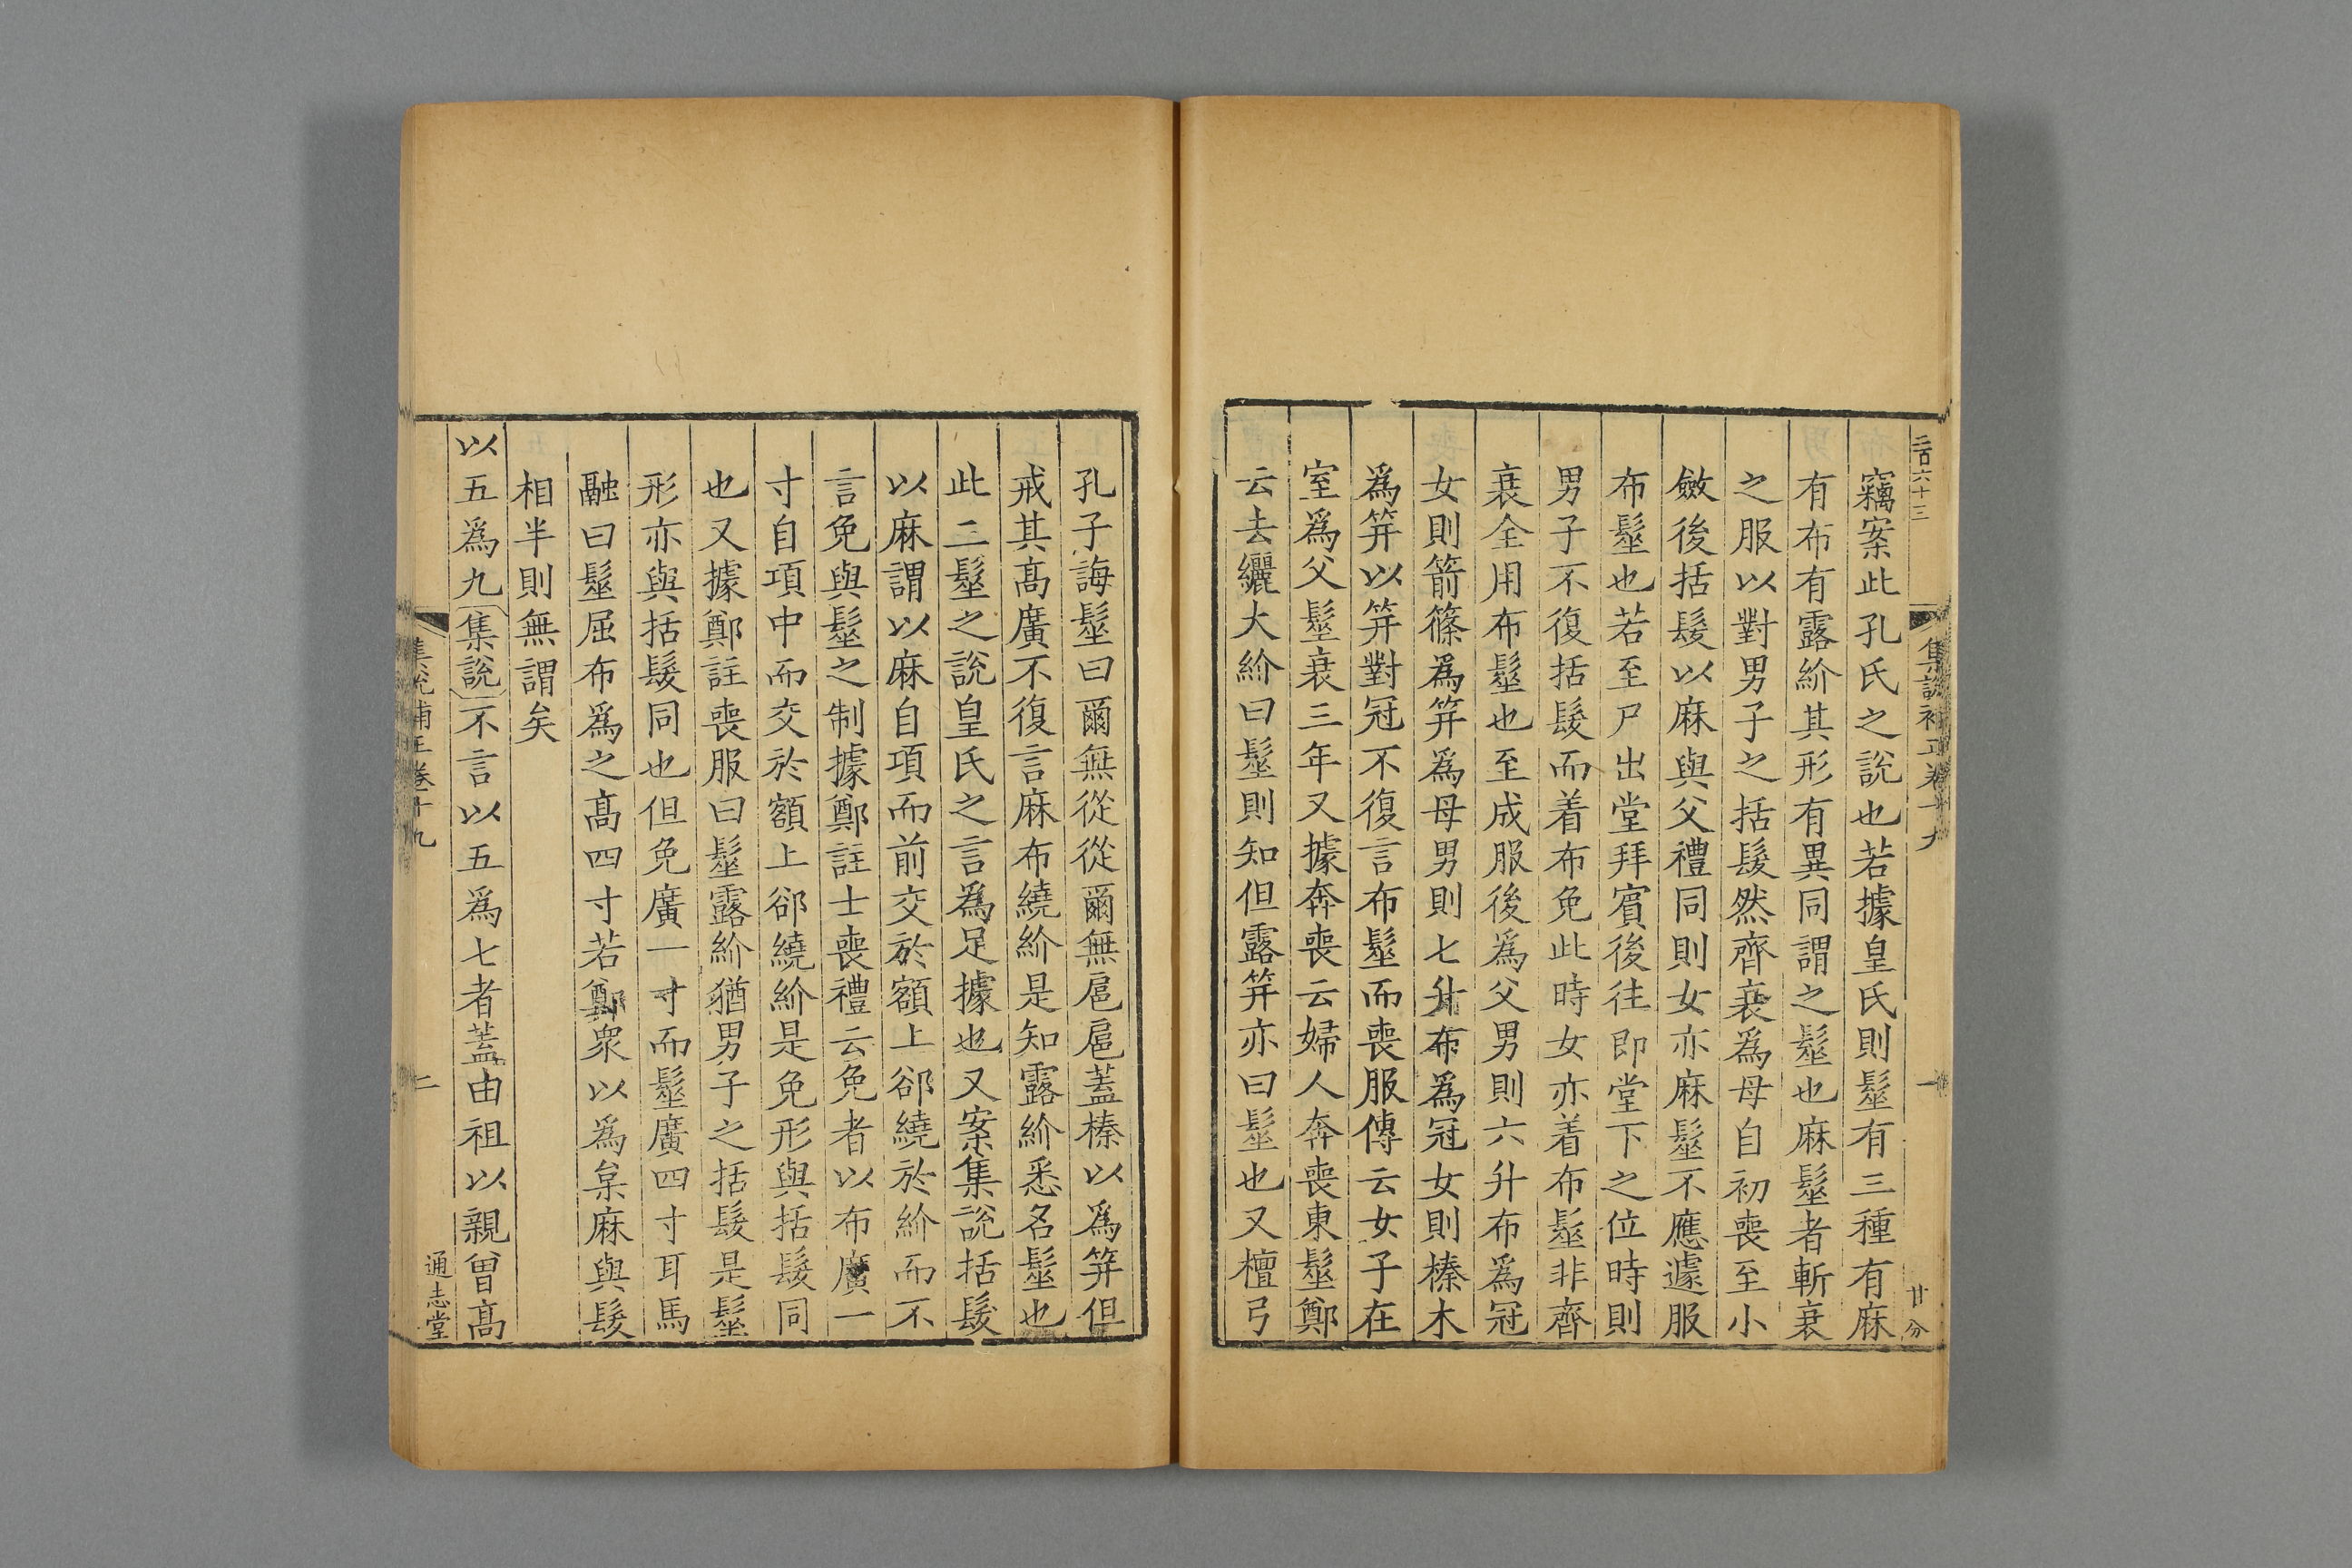 二百六十三
集說補正卷十九
一
廿分
竊案此孔氏之說也若據皇氏則髽有三種有麻
有布有露紒其形有異同謂之髽也麻髽者斬衰
之服以對男子之括髮然齊衰爲母自初喪至小
斂後括髮以麻與父禮同則女亦麻髽不應遽服
布髽也若至尸出堂拜賓後往即堂下之位時則
男子不復括髮而着布免此時女亦着布髽非齊
衰全用布髽也至成服後為父男則六升布爲冠
女則箭篠爲笄爲母男則七升布爲冠女則榛木
爲笄以笄對冠不復言布髽而喪服傳云女子在
室爲父髽衰三年又據奔喪云婦人奔喪東髽鄭
云去纚大紒曰髽則知但露笄亦曰髽也又檀弓
孔子誨髽曰爾無從從爾無扈扈蓋榛以爲笄但
戒其高廣不復言麻布繞紒是知露紒悉名髽也
此二髽之說皇氏之言爲足據也又案集說括髮
以麻謂以麻自項而前交於額上郤繞於紒而不
言免與髽之制據鄭註士喪禮云免者以布廣一
寸自項中而交於額上郤繞紒是免形與括髮同
也又據鄭註喪服曰髽露紒猶男子之括髮是髽
形亦與括髮同也但免廣一寸而髽廣四寸耳馬
融曰髽屈布爲之高四寸若鄭衆以爲枲麻與髮
相半則無謂矣
以五爲九集說不言以五爲七者蓋由祖以親曾高
集說補正卷十九
二
通志堂